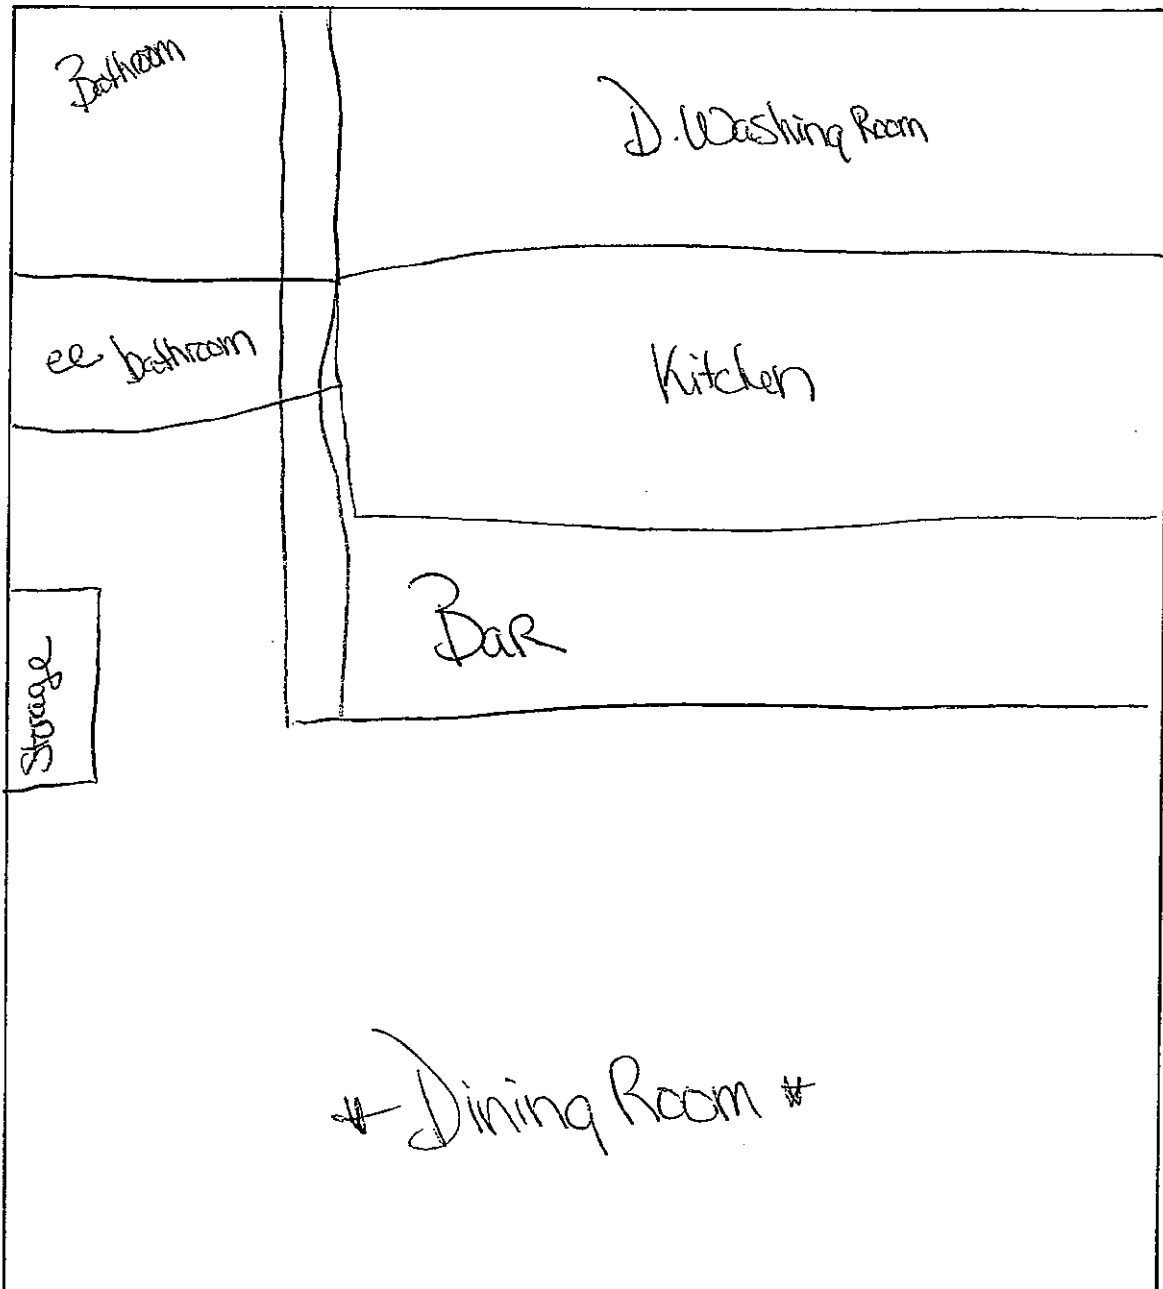 Bathroom
D. Washing Room
ee bathroom
Kitchen
BaR
Storage
* Dining Room *